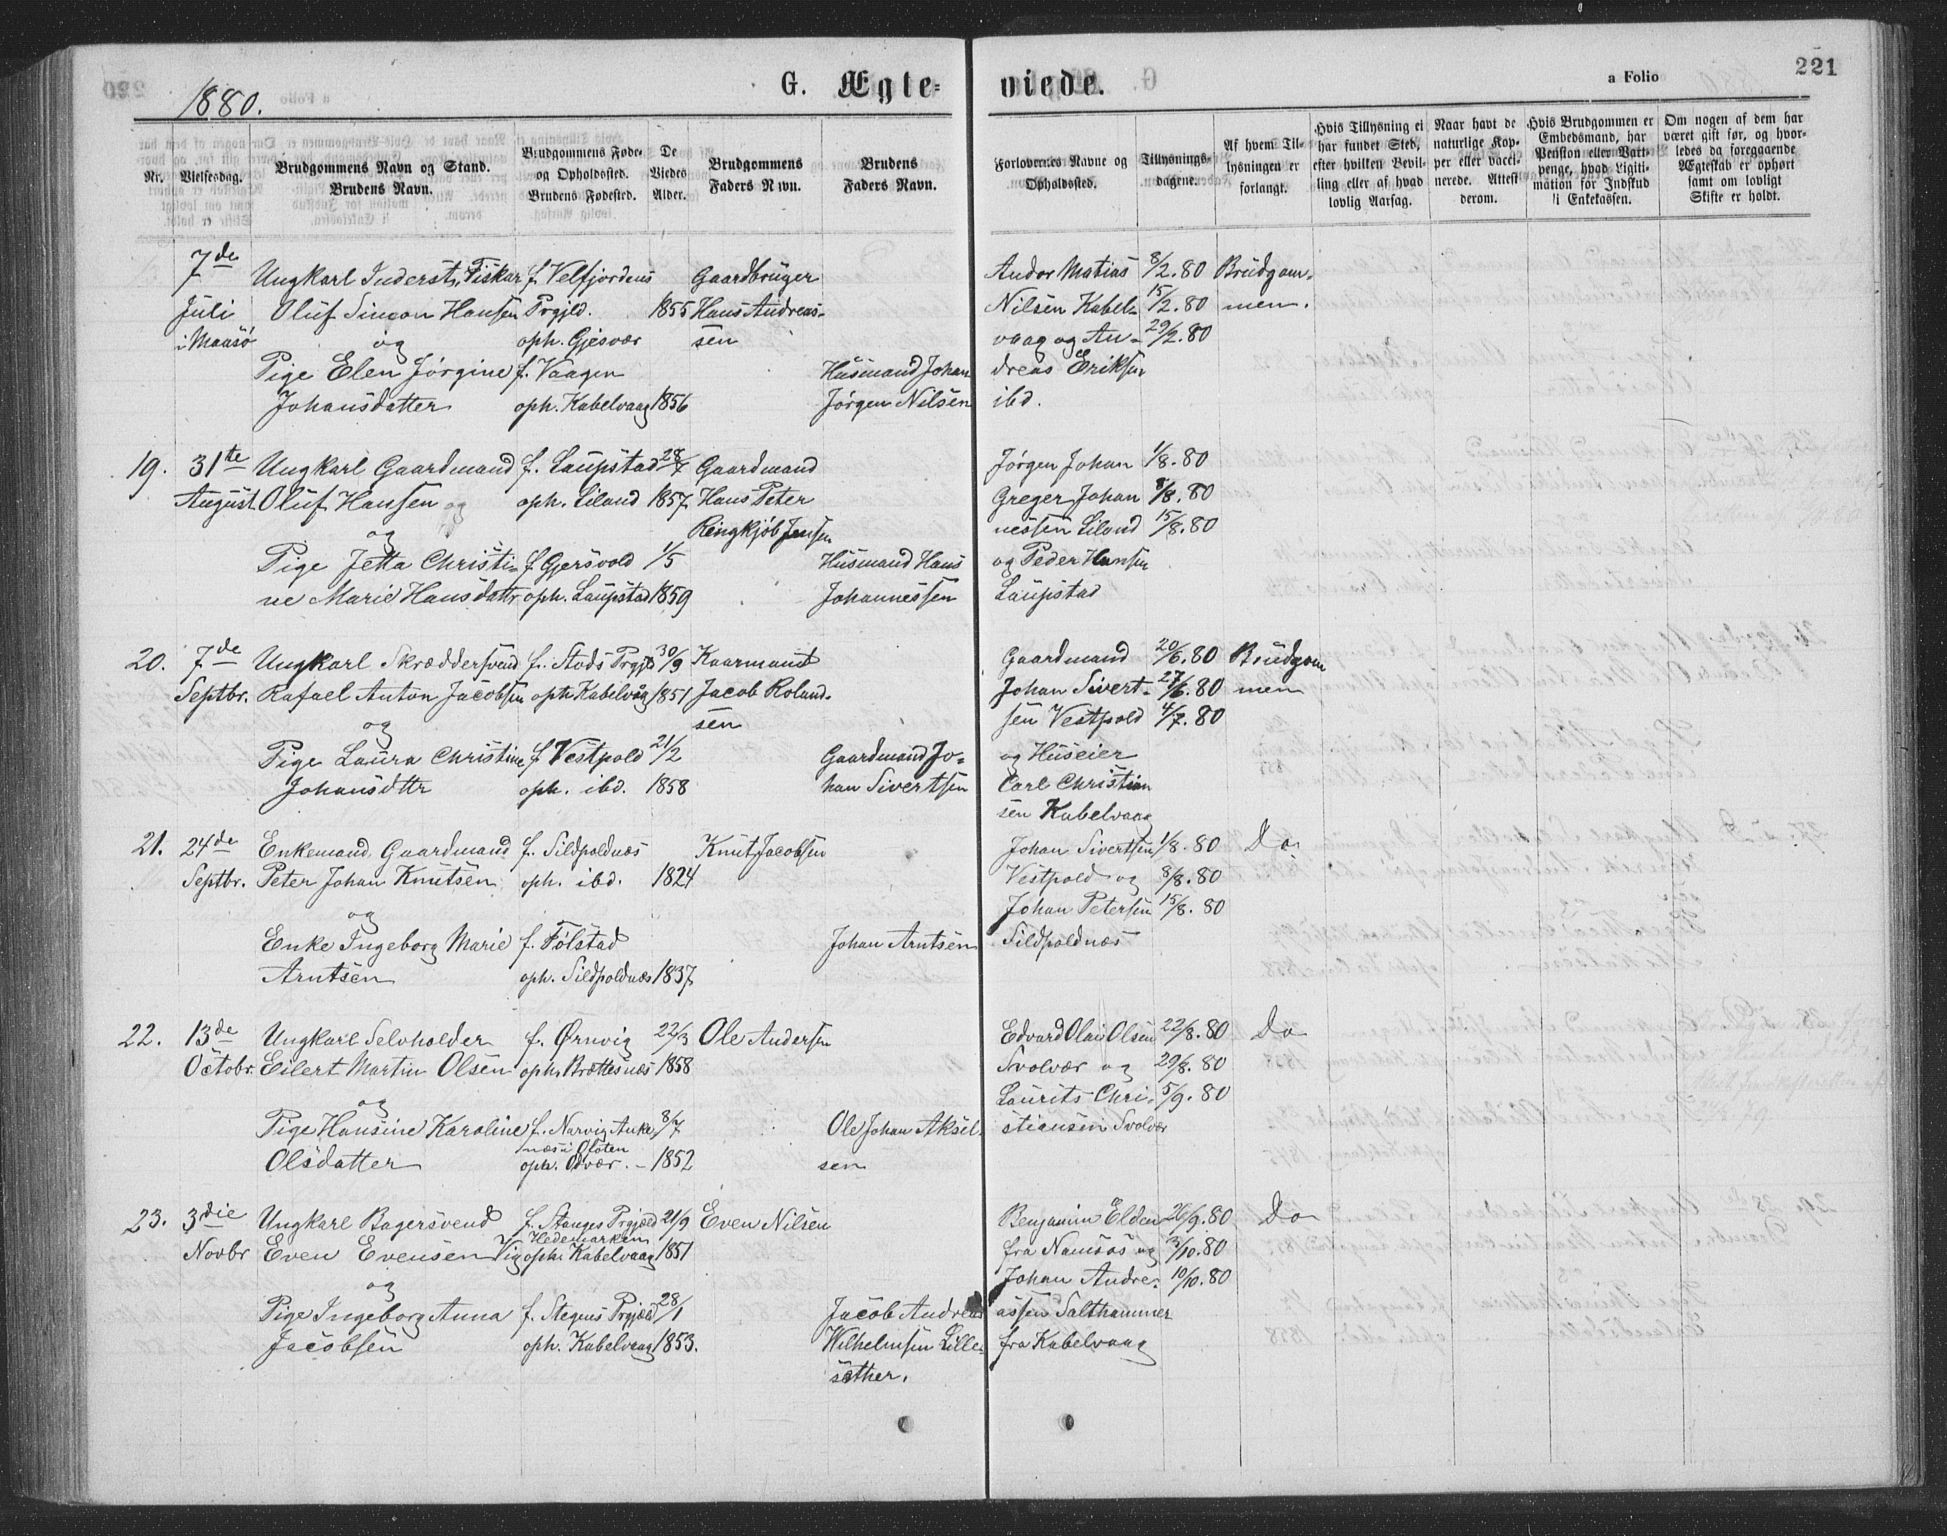 1880.
G. Ægteviede.
a Folio
221
Nr.
Vielsesdag.
Brudgommens Navn og Stand.
Brudens Navn.
Brudgommens Føde-
og Opholdssted.
Brudens Fødested.
De
Viedes
Alder.
Brudgommens
Faders Navn.
Brudens
Faders Navn.
Forlovernes Navne og
Opholdssted.
Tillysnings-
dagene.
Af hvem Til-
lysningen er
forlangt.
Hvis Tillysning ei
har fundet Sted,
efter hvilken Bevil-
ling eller af hvad
lovlig Aarsag.
Naar havt de
naturlige Kop-
per eller vacci-
nerede. Attest
derom.
Hvis Brudgommen er
Embedsmand, har
Pension eller Vart-
penge, hvad Ligiti-
mation for Indskud
i Enkekassen.
Om nogen af dem har
været gift før, og hvor-
ledes da foregaaende
Ægteskab er ophørt
samt om lovligt
Skifte er holdt.
7de Ungkarl Inderst, Fiskar f. Velfjordens Gaardbruger Andor Matias 8/2.80 Brudgom-
Juli Oluf Simon Hansen Prgjld. 1855 Hans Andreas- Nilsen Kabel- 15/2.80 men.
i Maasø og oph. Gjesvær sen vaag og An- 29/2.80
Pige Elen Jørgine f. Vaagen Husmand Johan dreas Eriksen
Johansdatter oph. Kabelvaag 1856 Jørgen Nilsen ibd.
19. 31te Ungkarl Gaardmand f. Laupstad 28/7 Gaardmand Jørgen Johan 1/8.80
August Oluf Hansen og oph. Liland 1857 Hans Peter Greger Johan 8/8.80
og Ringkjøb Jensen nessen Liland 15/8.80
Pige Jetta Christi- f. Gjersvold 1/5 Husmand Hans og Peder Hansen
ne Marie Hansdattr oph. Laupstad 1859 Johannessen Laupstad
20. 7de Ungkarl Skræddersvend f. Stods Prgjld 30/9 Kaarmand Gaardmand 20/6.80 Brudgom
Septbr. Rafael Anton Jacobsen oph. Kabelvåg 1851 Jacob Roland- Johan Sivert- 27/6.80 men
og sen sen Vestpold 4/7.80
Pige Laura Christine f. Vestpold 21/2 Gaardmand Jo- og Huseier
Johansdttr oph. ibd. 1858 han Sivertsen Carl Christian
sen Kabelvaag
21. 24de Enkemand, Gaardmand f. Sildpoldnæs Knut Jacobsen Johan Sivertsen 1/8.80 Do
Septbr. Peter Johan Knutsen oph. ibd. 1824 Vestpold og 8/8.80
og Johan Petersen 15/8.80
Enke Ingeborg Marie f. Følstad Johan Arntsen Sildpoldnæs
Arntsen oph. Sildpoldnæs 1837
22. 13de Ungkarl Selvholder f. Ørnvig 22/3 Ole Andersen Edvard Olai Olsen 22/8.80 Do
Octobr. Eilert Martin Olsen oph. Brættesnæs 1858 Svolvær og 29/8.80
og Laurits Chri- 5/9.80
Pige Hansine Karoline f. Narvig Anke 8/7 Ole Johan Aksel- stiansen Svolvær
næs i Ofoten
Olsdatter oph. Odvær. - 1852 sen
23. 3die Ungkarl Bagersvend f. Stanges Prgjæld 21/9 Even Nilsen Benjamin Elden 26/9.80 Do
Hedemarken
Novbr Even Evensen Vig oph. Kabelvaag 1851 fra Namsos og 3/10.80
og Johan Andre- 10/10.80
Pige Ingeborg Anna f. Stegens Prgjæld 28/1 Jacob Andreas assen Salthammer
Jacobsen oph. Kabelvaag 1853. Wilhelmsen Lille- fra Kabelvaag
sæther.